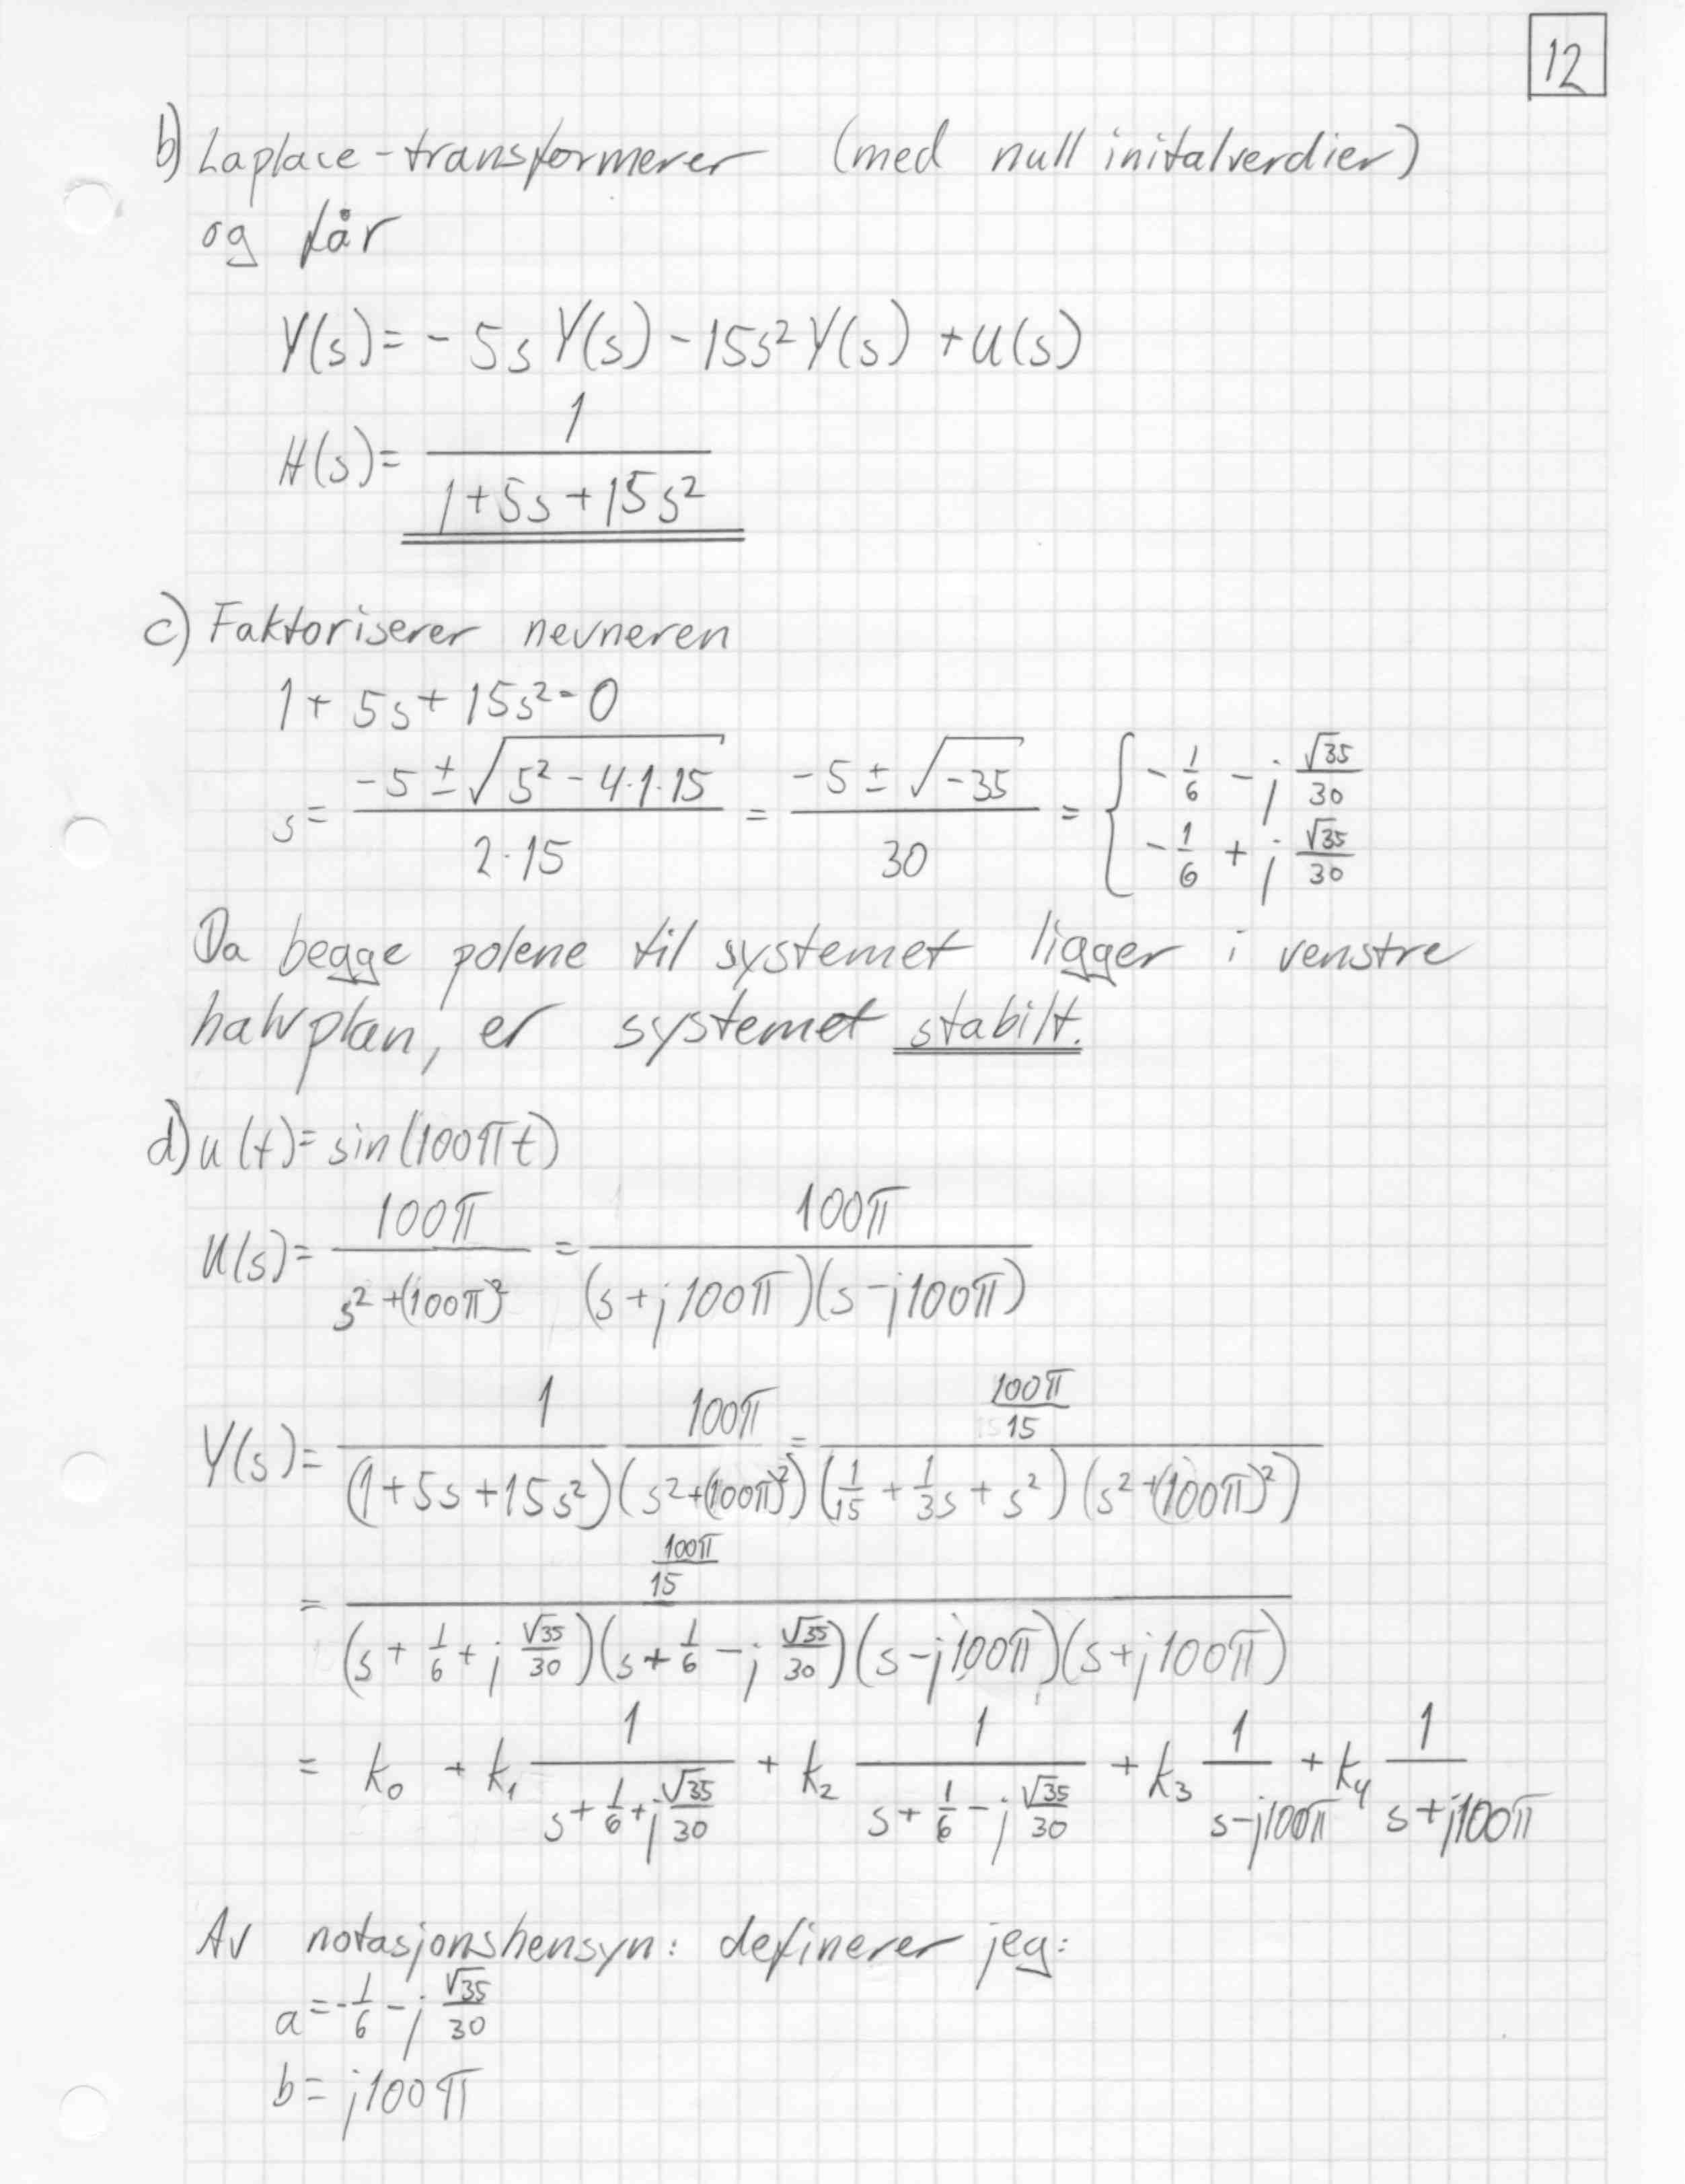 12
b) Laplace-transformerer (med null initalverdier)
og får
Y(s) = - 5s Y(s) - 15s² Y(s) + U(s)
H(s) = 1 / (1 + 5s + 15s²)
c) Faktoriserer nevneren
1 + 5s + 15s² = 0
s = (-5 ± √(5² - 4·1·15)) / (2·15) = (-5 ± √(-35)) / 30 = { -1/6 - j √35/30
-1/6 + j √35/30
Da begge polene til systemet ligger i venstre
halvplan, er systemet stabilt.
d) u(t) = sin(100πt)
U(s) = 100π / (s² + (100π)²) = 100π / ((s + j100π)(s - j100π))
Y(s) = 1 / (1 + 5s + 15s²) 100π / (s² + (100π)²) = (100π/15) / ((1/15 + 1/3 s + s²)(s² + (100π)²))
= (100π/15) / ((s + 1/6 + j √35/30)(s + 1/6 - j √35/30)(s - j100π)(s + j100π))
= k₀ + k₁ 1/(s + 1/6 + j √35/30) + k₂ 1/(s + 1/6 - j √35/30) + k₃ 1/(s - j100π) + k₄ 1/(s + j100π)
Av notasjonshensyn: definerer jeg:
a = -1/6 - j √35/30
b = j100π